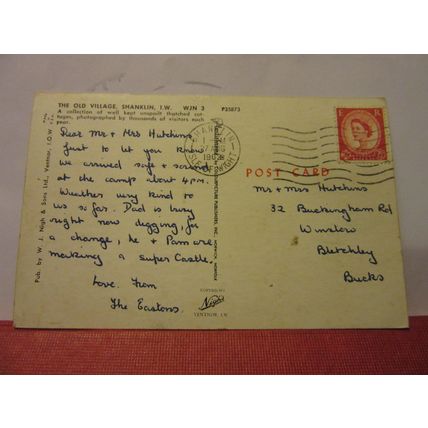 THE OLD VILLAGE, SHANKLIN, I.W. WJN 3 P35873
A collection of well kept unspoilt thatched cot-
tages, photographed by thousands of visitors each
year.
Dear Mr + Mrs Hutchins,
Just to let you know
we arrived safe + sound
at the camp about 4pm.
Weather very kind to
us so far. Dad is busy
right now digging, for
a change, he + Pam are
making a super Castle.
Love from
The Eastons
Pub. by W. J. Nigh & Sons Ltd., Ventnor, I.O.W
SHANKLIN
ISLE OF WIGHT
POST CARD
Mr + Mrs Hutchins
32 Buckingham Rd
Winslow
Bletchley
Bucks
Nigh